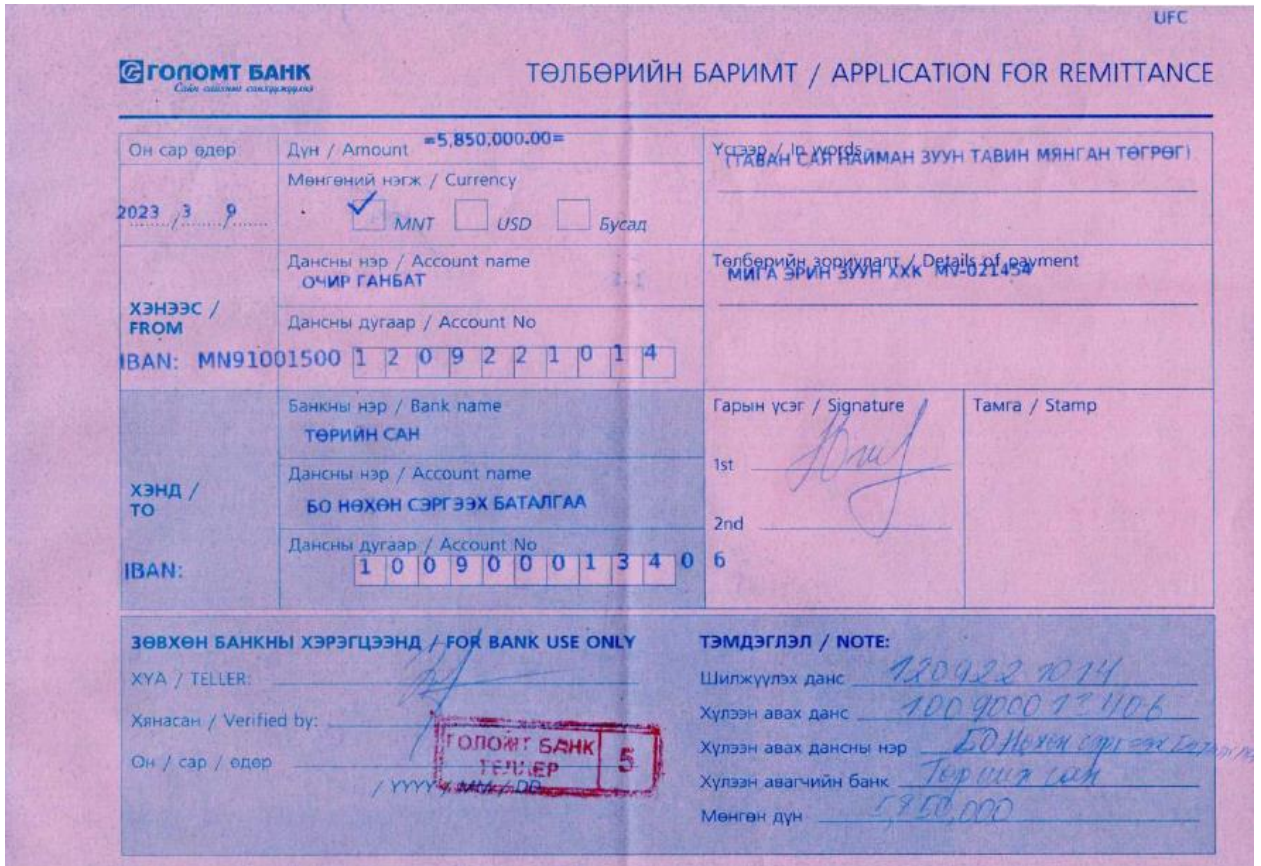 UFC
ГОЛОМТ БАНК
ТӨЛБӨРИЙН БАРИМТ / APPLICATION FOR REMITTANCE
Он сар өдөр
2023 / 3 / 9
Дүн / Amount =5,850,000.00=
Мөнгөний нэгж / Currency
MNT USD Бусад
Үсгээр / In words
(ТАВАН САЯ НАЙМАН ЗУУН ТАВИН МЯНГАН ТӨГРӨГ)
ХЭНЭЭС /
FROM
Дансны нэр / Account name
ОЧИР ГАНБАТ
Дансны дугаар / Account No
IBAN: MN91001500 1 2 0 9 2 2 1 0 1 4
Төлбөрийн зориулалт / Details of payment
МИГА ЭРИН ЗУУН ХХК MV-021454
ХЭНД /
TO
Банкны нэр / Bank name
ТӨРИЙН САН
Дансны нэр / Account name
БО НӨХӨН СЭРГЭЭХ БАТАЛГАА
Дансны дугаар / Account No
IBAN: 1 0 0 9 0 0 0 1 3 4 0 6
Гарын үсэг / Signature
1st
2nd
Тамга / Stamp
ЗӨВХӨН БАНКНЫ ХЭРЭГЦЭЭНД / FOR BANK USE ONLY
ХУА / TELLER:
Хянасан / Verified by:
Он / сар / өдөр
/ YYYY / MM / DD
ГОЛОМТ БАНК
ТЕЛЛЕР 5
ТЭМДЭГЛЭЛ / NOTE:
Шилжүүлэх данс 1209221014
Хүлээн авах данс 100900013406
Хүлээн авах дансны нэр БО Нөхөн сэргээх
Хүлээн авагчийн банк Төрийн сан
Мөнгөн дүн 5,850,000